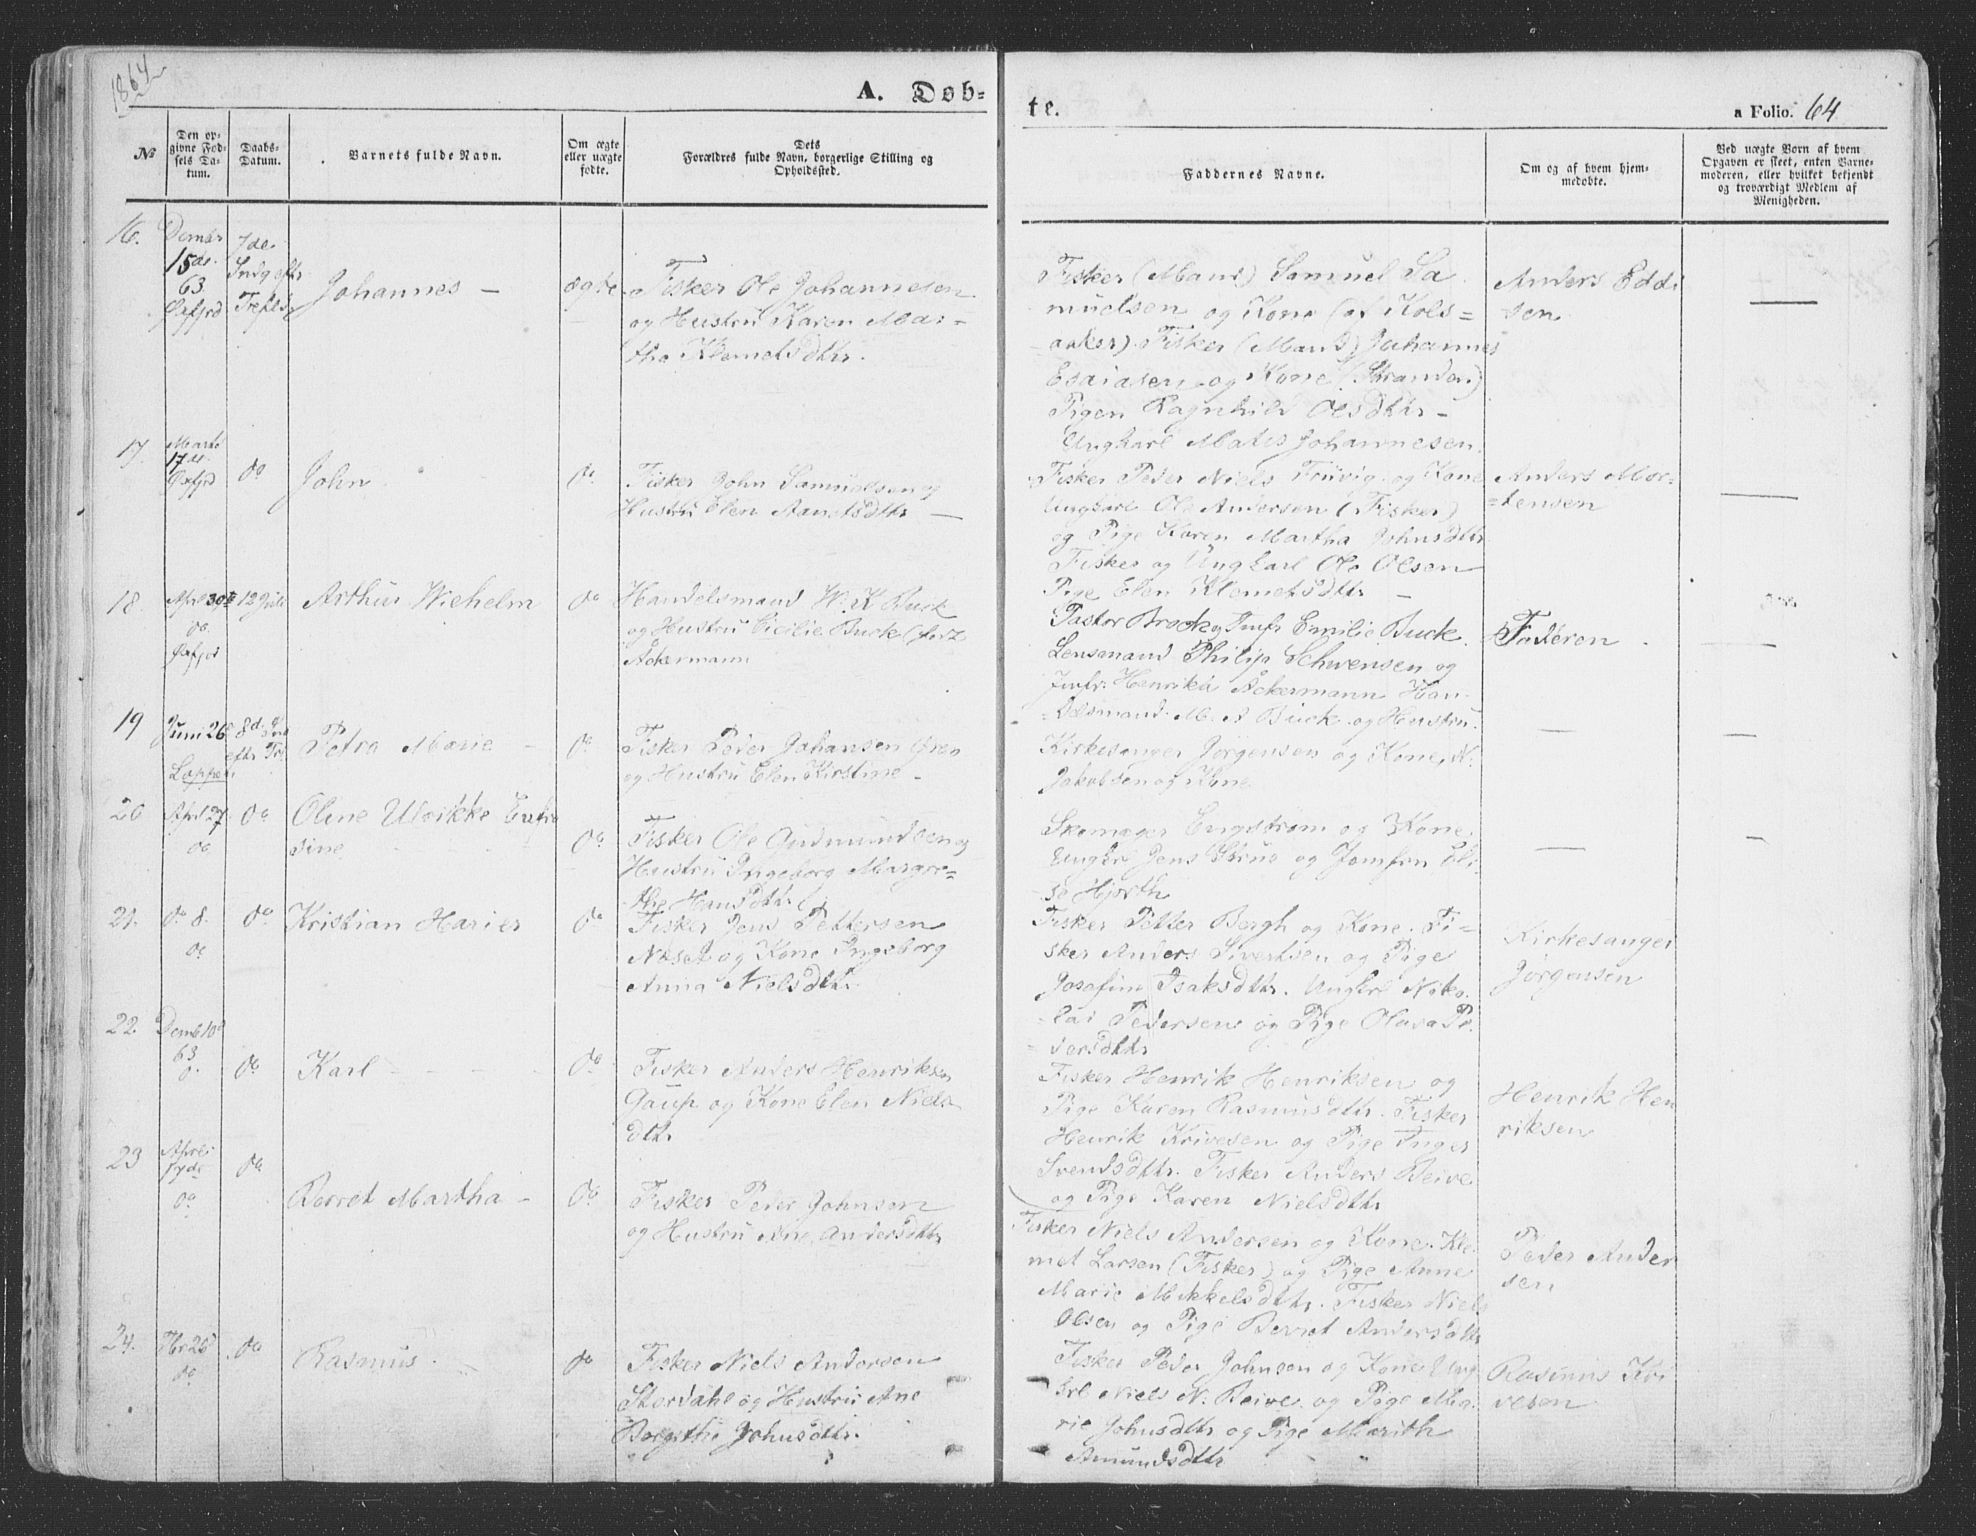 1864
A. Døb-
te.
a Folio. 64
№
Den op-
givne Fød-
sels Da-
tum.
Daabs-
Datum.
Barnets fulde Navn.
Om ægte
eller uægte
fødte.
Dets
Forældres fulde Navn, borgerlige Stilling og
Opholdssted.
Faddernes Navne.
Om og af hvem hjem-
medøbte.
Ved uægte Børn af hvem
Opgaven er skeet, enten Barne-
moderen, eller hvilket bekjendt
og troværdigt Medlem af
Menigheden.
16.
Decmbr
15de
63
Øxfjord
7de
Sndg eftr
Trefds
Johannes –
ægte
Fisker Ole Johannesen
og Hustru Karen Mar=
tha Klemetsdttr.
Fisker (Mand) Samuel Sa
muelsen og Kone (af Kols=
aaker). Fisker (Mand) Johannes
Esaiasen og Kone (Stranden)
Pigen Ragnhild Olsdttr –
Ungkarl Mates Johannesen.
Anders Eddi
sen
17.
Marts
17de
Øxfjord
do
John
do
Fisker John Samuelsen og
Hustru Elen Aanetsdttr –
Fisker Peder Niels Früvig og Kone
Ungkarl Ole Andersen (Fisker)
og Pige Karen Martha Johnsdttr
Fisker og Ungkarl Ole Olsen
Pige Elen Klemetsdttr –
Anders Mor-
=tensen
18.
April 30te
do
Øxfjord
12 Juli
Arthur Wiehelm
do
Handelsmand W. K. Buck
og Hustru Cicilie Buck (født
Ackermann
Pastor Brock og Jmfr Emilie Buck
Lensmand Philip Schwensen og
Jmfr. Henrika Ackermann Han
=delsmand M. A Buck og Hustru.
Faderen
19
Juni 26
Loppen
8d. Snd
eftr Tr.
Petra Marie –
do
Fisker Peder Johansen Gren
og Hustru Elen Kirstine –
Kirkesanger Jørgensen og Kone, N.
Jakobsen og Kone
20
April 27
do
do
Oline Ulrikke Eufro
sine
do
Fisker Ole Gudmundsen og
Hustru Ingeborg Margre=
the Hansdttr
Skomager Engstrøm og Kone
Ungkrl Jens Sørus og Jomfru Eli
se Hjorth
21.
do 8.
do
do
Kristian Harier
do
Fisker Jens Pettersen
Næset og Kone Ingeborg
Anna Nielsdttr.
Fisker Petter Bergh og Kone. Fi-
sker Anders Sivertsen og Pige
Josafine Isaksdttr. Ungkrl Niko
lai Pedersen og Pige Olava Pe
dersdttr
Kirkesanger
Jørgensen
22.
Decmb 10d
63
do
do
Karl
do
Fisker Anders Henriksen
Gaup og Kone Elen Niels
dttr
Fisker Henrik Henriksen og
Pige Karen Rasmusdttr. Fisker
Henrik Krivesen og Pige Inger
Svendsdttr. Fisker Anders Beive
og Pige Karen Nielsdttr
Henrik Hen
riksen
23
April
do
do
Berret Martha –
do
Fisker Peder Johnsen
og Hustru Ane Andersdttr
Fisker Niels Andersen og Kone. Kle
met Larsen (Fisker) og Pige Anne
Marie Mikkelsdttr. Fisker Niels
Olsen og Pige Berret Andersdttr
Peder Ander
sen
24.
do
do
Rasmus
do
Fisker Niels Andersen
Stordahl og Hustru Ane
Borgithe Johnsdttr.
Fisker Peder Johnsen og Kone Ung
krl Niels N. Beive og Pige Ma
rie Johnsdttr og Pige Marith
Amundsdttr
Rasmus Kri
vesen